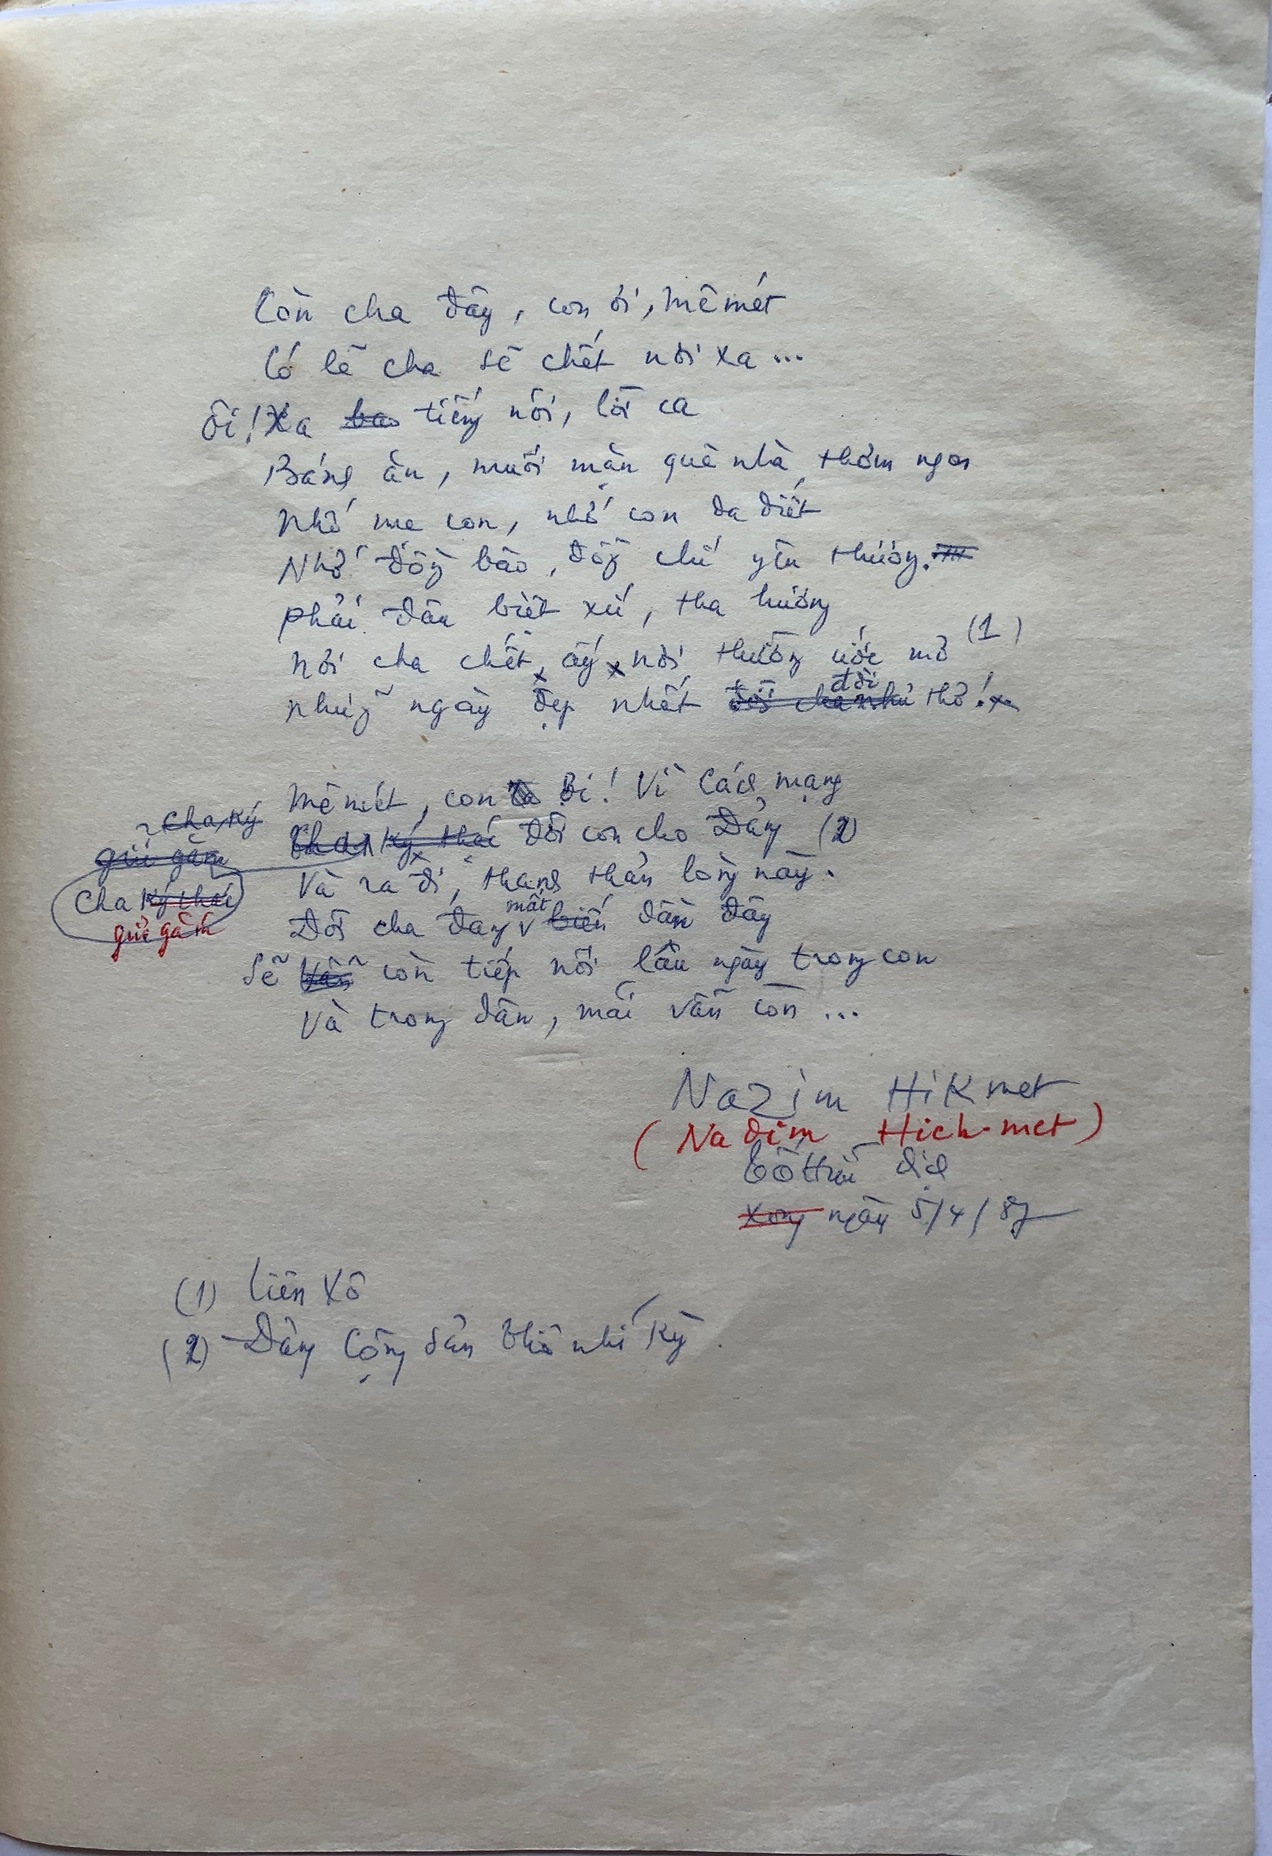 Còn cha đây, con ơi, Mêmét
Có lẽ cha sẽ chết nơi xa...
Ôi! Xa ba tiếng nói, lời ca
Bánh ăn, muối mặn quê nhà thơm ngon
Nhớ mẹ con, nhớ con da diết
Nhớ đồng bào, đồng chí yêu thương.
Phải đâu biệt xứ, tha hương
Nơi cha chết ấy, nơi thường ước mơ (1)
đời
Những ngày đẹp nhất đời cha như thơ!
Mêmét, con Bi! Vì Cách mạng
Cha ký
Cha ký thác đời con cho Đảng (2)
gửi gắm
Và ra đi, thanh thản lòng này.
Cha ký thác
mất
gửi gắm
Đời cha đang biến dần đây
Sẽ vẫn còn tiếp nối lâu ngày trong con
Và trong dân, mãi vẫn còn...
Nazim Hikmet
(Nadim Hich-met)
Tố Hữu dịch
Xong ngày 5/4/87
(1) Liên Xô
(2) Đảng Cộng sản Thổ nhĩ Kỳ.